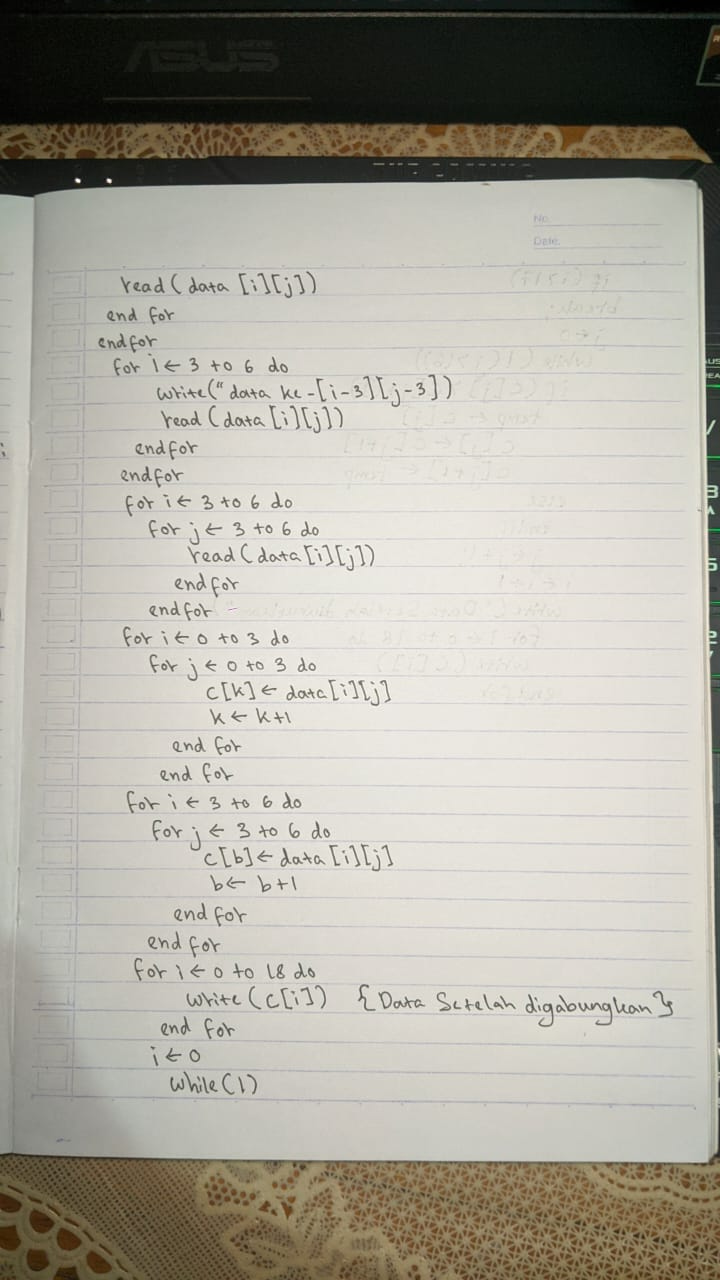 ASUS
No.
Date.
read (data [i][j])
end for
endfor
for i ← 3 to 6 do
write("data ke-[i-3][j-3])
read (data[i][j])
endfor
endfor
for i ← 3 to 6 do
for j ← 3 to 6 do
read (data[i][j])
endfor
endfor
for i ← 0 to 3 do
for j ← 0 to 3 do
c[k] ← data[i][j]
k ← k+1
end for
end for
for i ← 3 to 6 do
for j ← 3 to 6 do
c[b] ← data[i][j]
b ← b+1
end for
end for
for i ← 0 to 18 do
write (c[i]) {Data Setelah digabungkan}
end for
i ← 0
while(1)